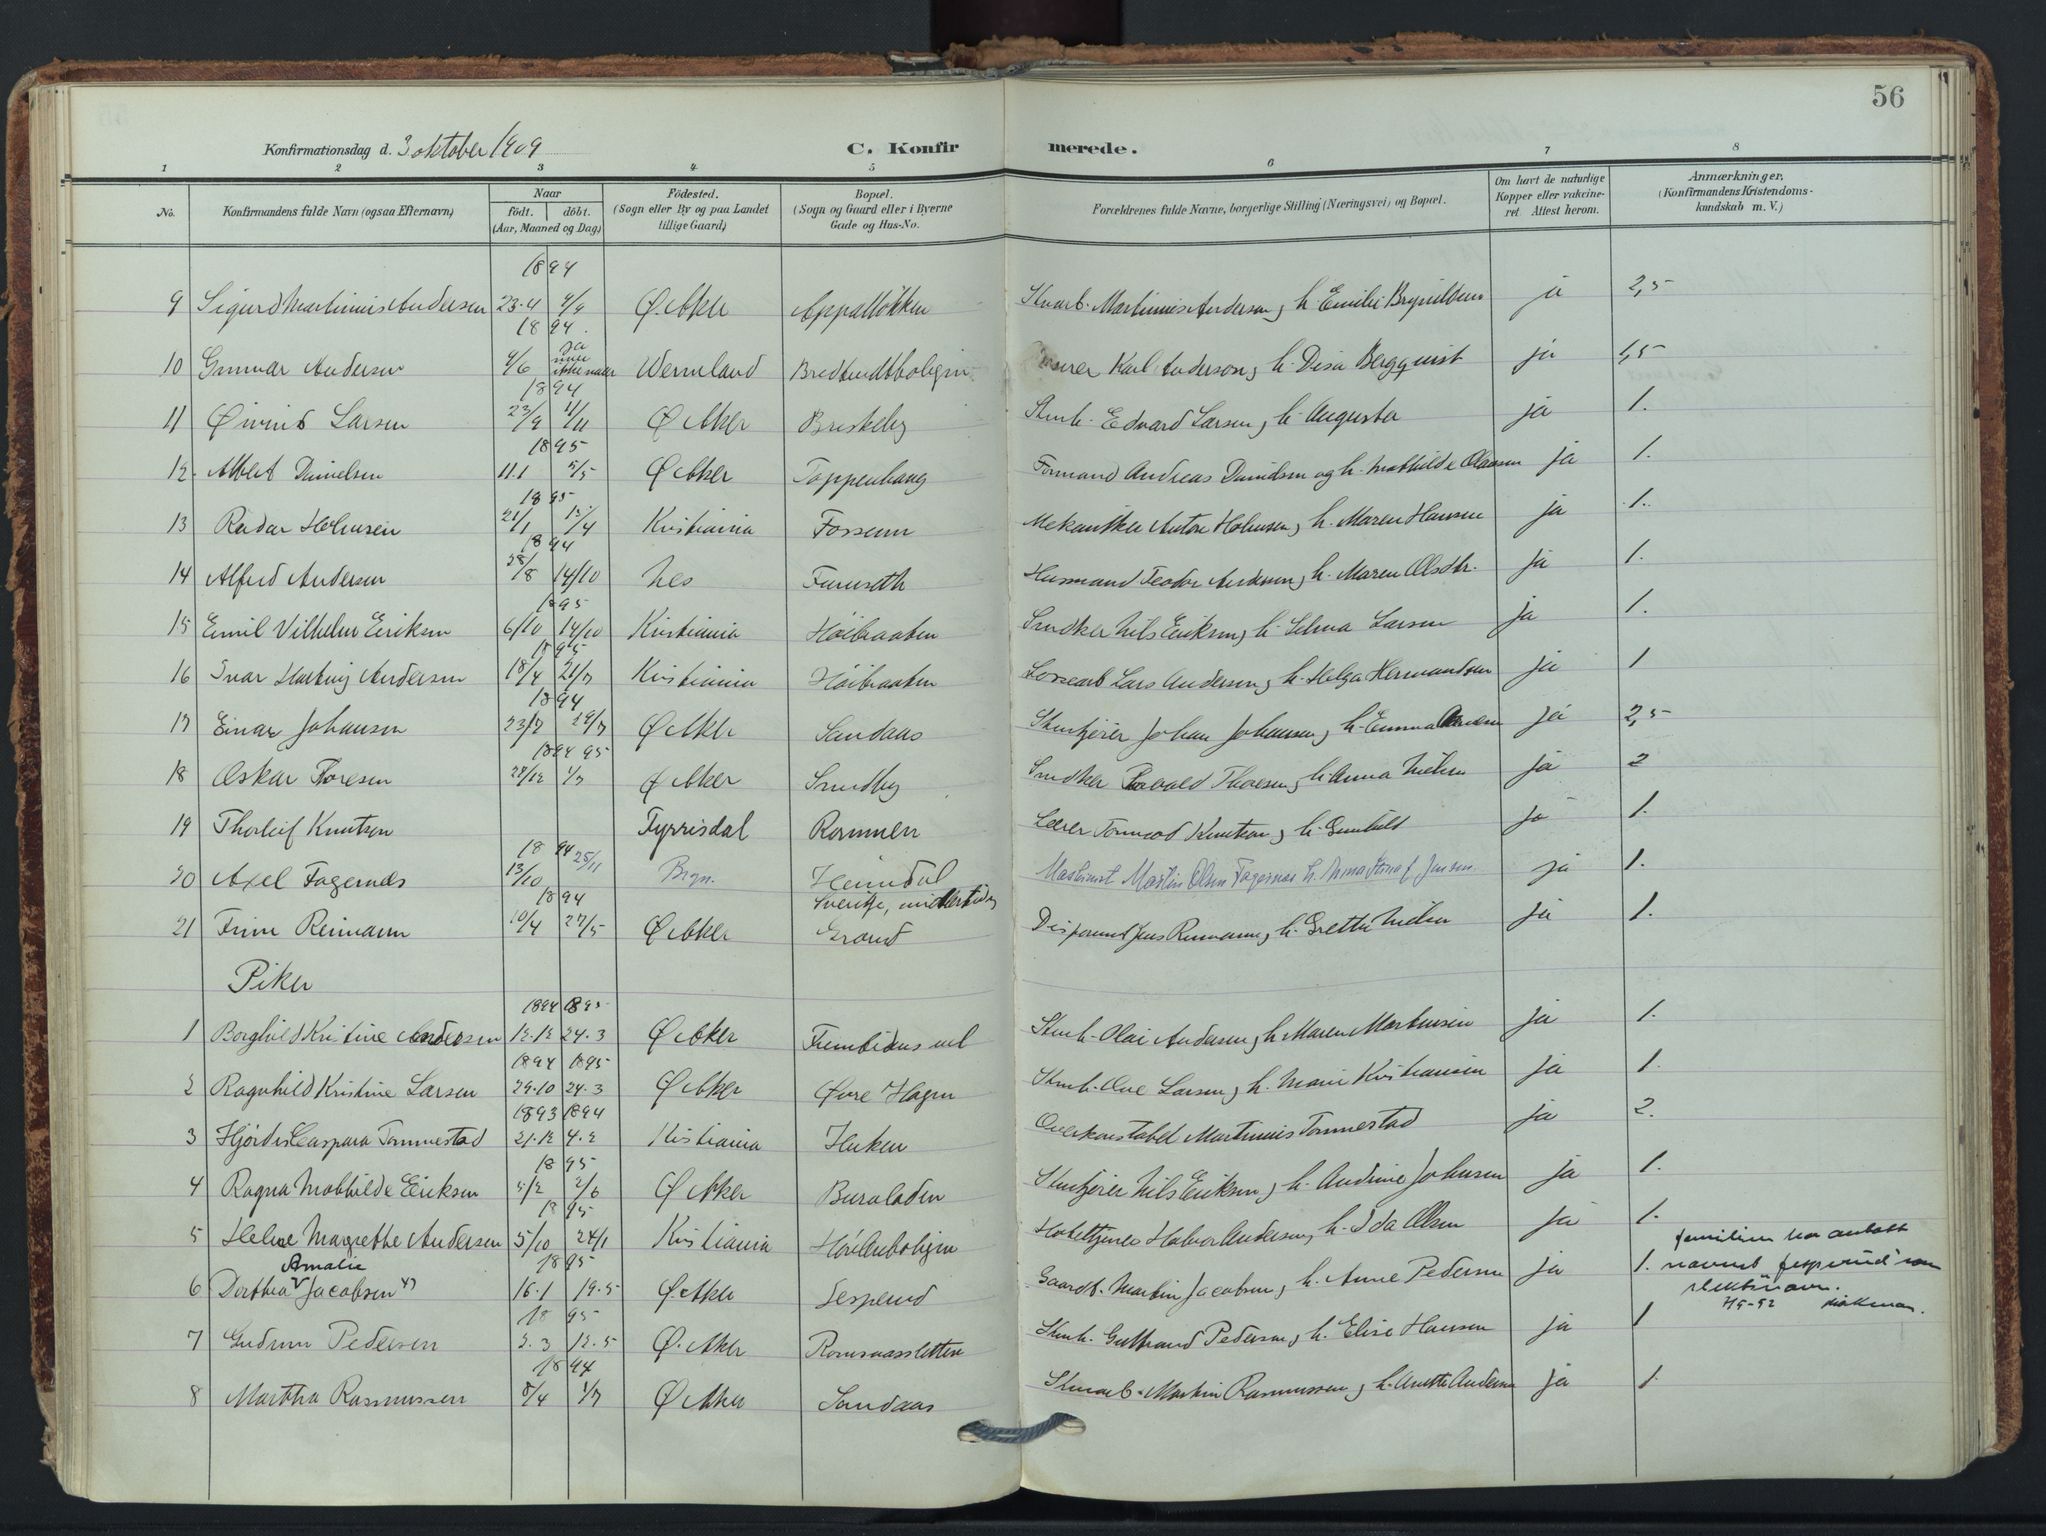 56
Konfirmationsdag d. 3 oktober 1909 C. Konfirmerede.
1 2 3 4 5 6 7 8
No. Konfirmandens fulde Navn (ogsaa Efternavn) Naar födt. döbt. (Aar, Maaned og Dag) Födested. (Sogn eller By og paa Landet tillige Gaard) Bopæl. (Sogn og Gaard eller i Byerne Gade og Hus-No. Forældrenes fulde Navne, borgerlige Stilling (Næringsvei) og Bopæl. Om havt de naturlige Kopper eller vakcineret. Attest herom. Anmærkninger, (Konfirmandens Kristendomskundskab m. V.)
1894
9 Sigurd Martinius Andersen 23.4 Ø. Aker Appalløkken Martinius Andersen, h. Emilie ja 2,5
1894
10 Gunnar Andersen 4/6 Wermland Karl Anderson, h. Disa Bergquist ja 1,5
1894
11 Øivind Larsen 23/9 11/11 Ø Aker Briskeby Stenh. Edvard Larsen, h. Augusta ja 1.
1895
12 Albert Danielsen 11.1 5/5 Ø Aker Toppenhaug Formand Andreas Danielsen og h. Mathilde Olausen ja 1.
1895
13 Reidar Holmsen 21/1 15/4 Kristiania Fossum Mekaniker Anton Holmsen, h. Maren Hansen ja 1.
1894
14 Alfred Andersen 28/8 14/10 Nes Furuseth Husmand Teodor Andersen, h. Maren Olsdtr. ja 1.
1895
15 Emil Vilhelm Eriksen 6/10 14/10 Kristiania Høibraaten Snedker Nils Eriksen, h. Selma Larsen ja 1.
1895
16 Ivar Hartvig Andersen 18/4 21/7 Kristiania Høibraaten Lars Andersen, h. Helga Hermandsen ja 1
1894
17 Einar Johansen 23/2 29/7 Ø Aker Sandaas Stenkjører Johan Johansen, h. Emma ja 2,5
1894 95
18 Oskar Thoresen 28/12 1/7 Ø Aker Smedby Snedker Thorvald Thoresen, h. Anna Nielsen ja 2
19 Thorleif Knutson Fyrrisdal Rommen Lærer Tormod Knutson, h. Gunhild ja 1.
1894
20 Axel Fagernæs 13/10 25/11 Bryn. Heimdal Maskinist Martin Olsen Fagernæs h. Anna ja 1.
1894 Sverige, midlertidig
21 Finn Reimann 10/4 27/5 Ø Aker Grorud Disponent Jens Reimann, h. Grethe Nielsen ja 1.
Piker
1894 1895
1 Borghild Kristine Andersen 12.12 24.3 Ø Aker Fremtidens vel Stenh. Olai Andersen, h. Maren Martinsen ja 1.
1894 1895
2 Ragnhild Kristine Larsen 29.10 24.3 Ø Aker Øvre Hagen Stenh. Ove Larsen, h. Marie Kristiansen ja 1.
1893 1894
3 Hjørdis Caspara Tommestad 21.12 4.2 Kristiania Huken Overkonstabel Martinius Tommestad ja 2.
1895
4 Ragna Mathilde Eriksen 5/2 2/6 Ø Aker Buraladen Stenkjører Nils Eriksen, h. Andrine Johansen ja 1.
1895
5 Helene Margrethe Andersen 5/10 24/1 Kristiania Halvor Andersen, h. Ida Olsen ja 1.
Amalie 1895 familien har antatt
6 Dorthea Jacobsen 16.1 19.5 Ø. Aker Jesperud Gaardb. Martin Jacobsen, h. Anne Pedersen ja 1. navnet Jesperud som
slektsnavn.
1895
7 Gudrun Pedersen 2.3 12.5 Ø. Aker Romsaassletten Stenh. Gulbrand Pedersen, h. Elise Hansen ja 1
1894
8 Martha Rasmussen 8/4 1/7 Ø Aker Sandaas Martin Rasmussen, h. Anette Andersen ja 1